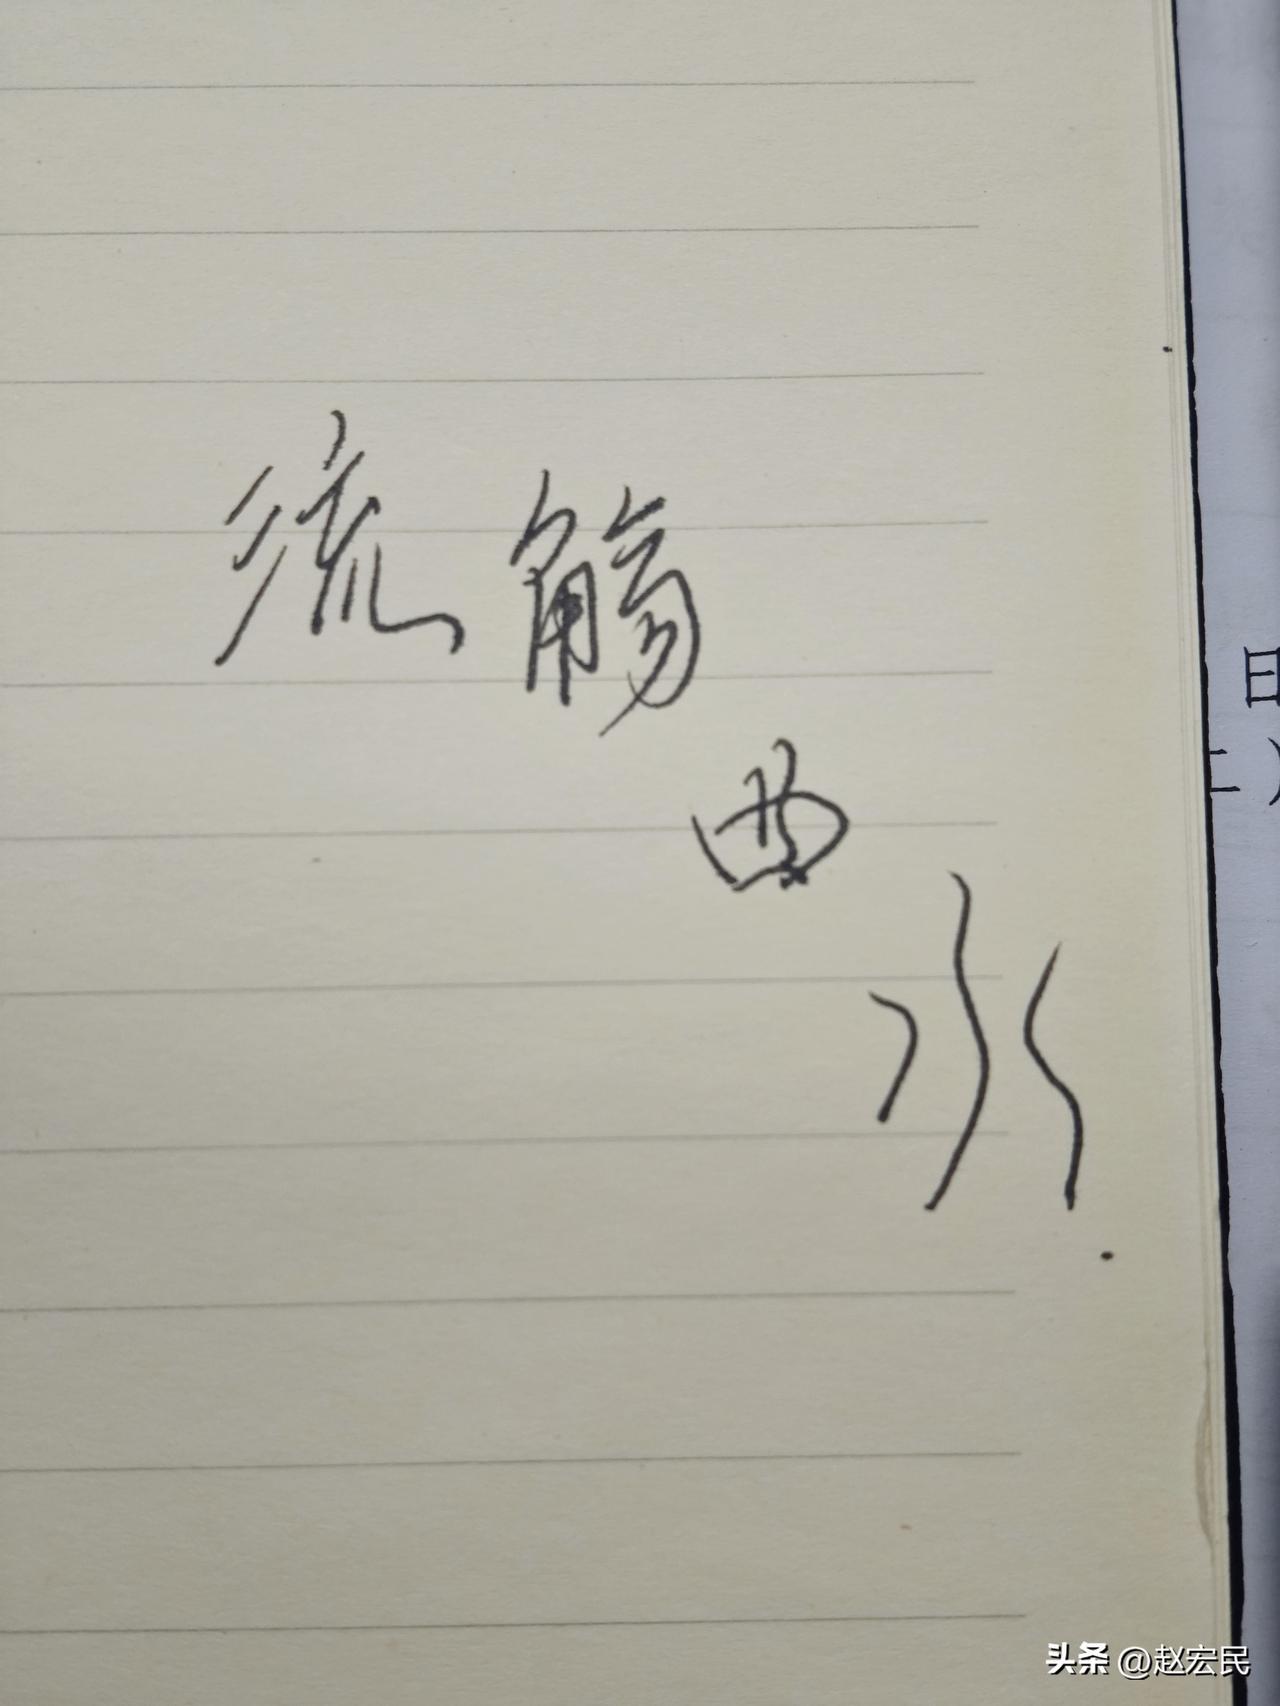 流觞
曲
水
日
二）
头条 @赵宏民